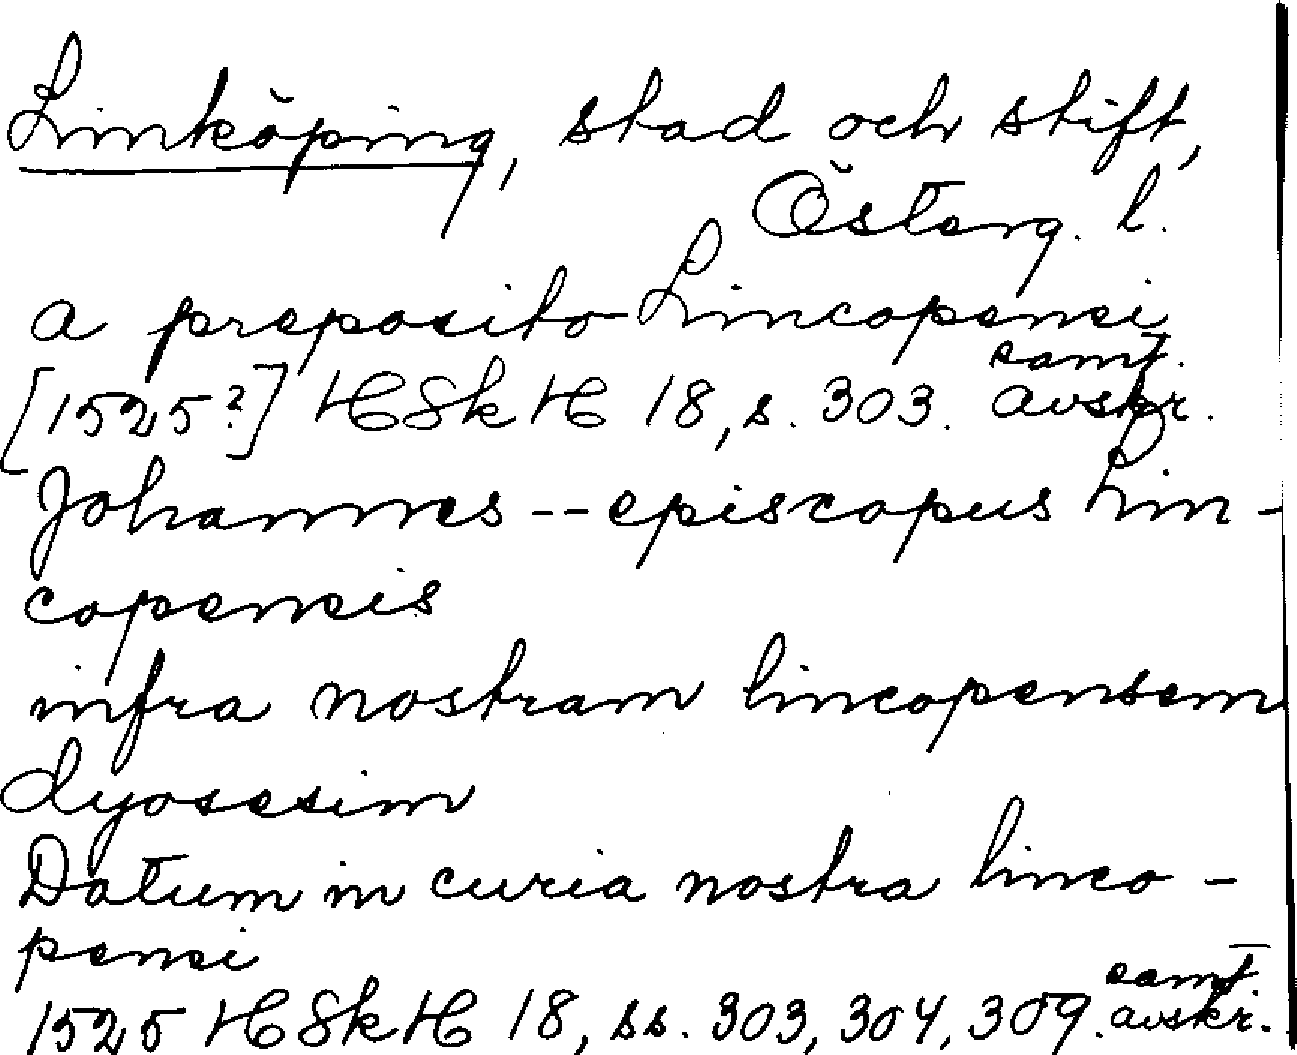 Linköping, stad och stift,
Österg. l.
a preposito Lincopensi
[1525?] HSkH 18, s. 303. samt. avskr.
Johannes -- episcopus Lin-
copensis
infra nostram lincopensem
dyosesim
Datum in curia nostra linco-
pensi
1525 HSkH 18, ss. 303, 304, 309. samt. avskr.